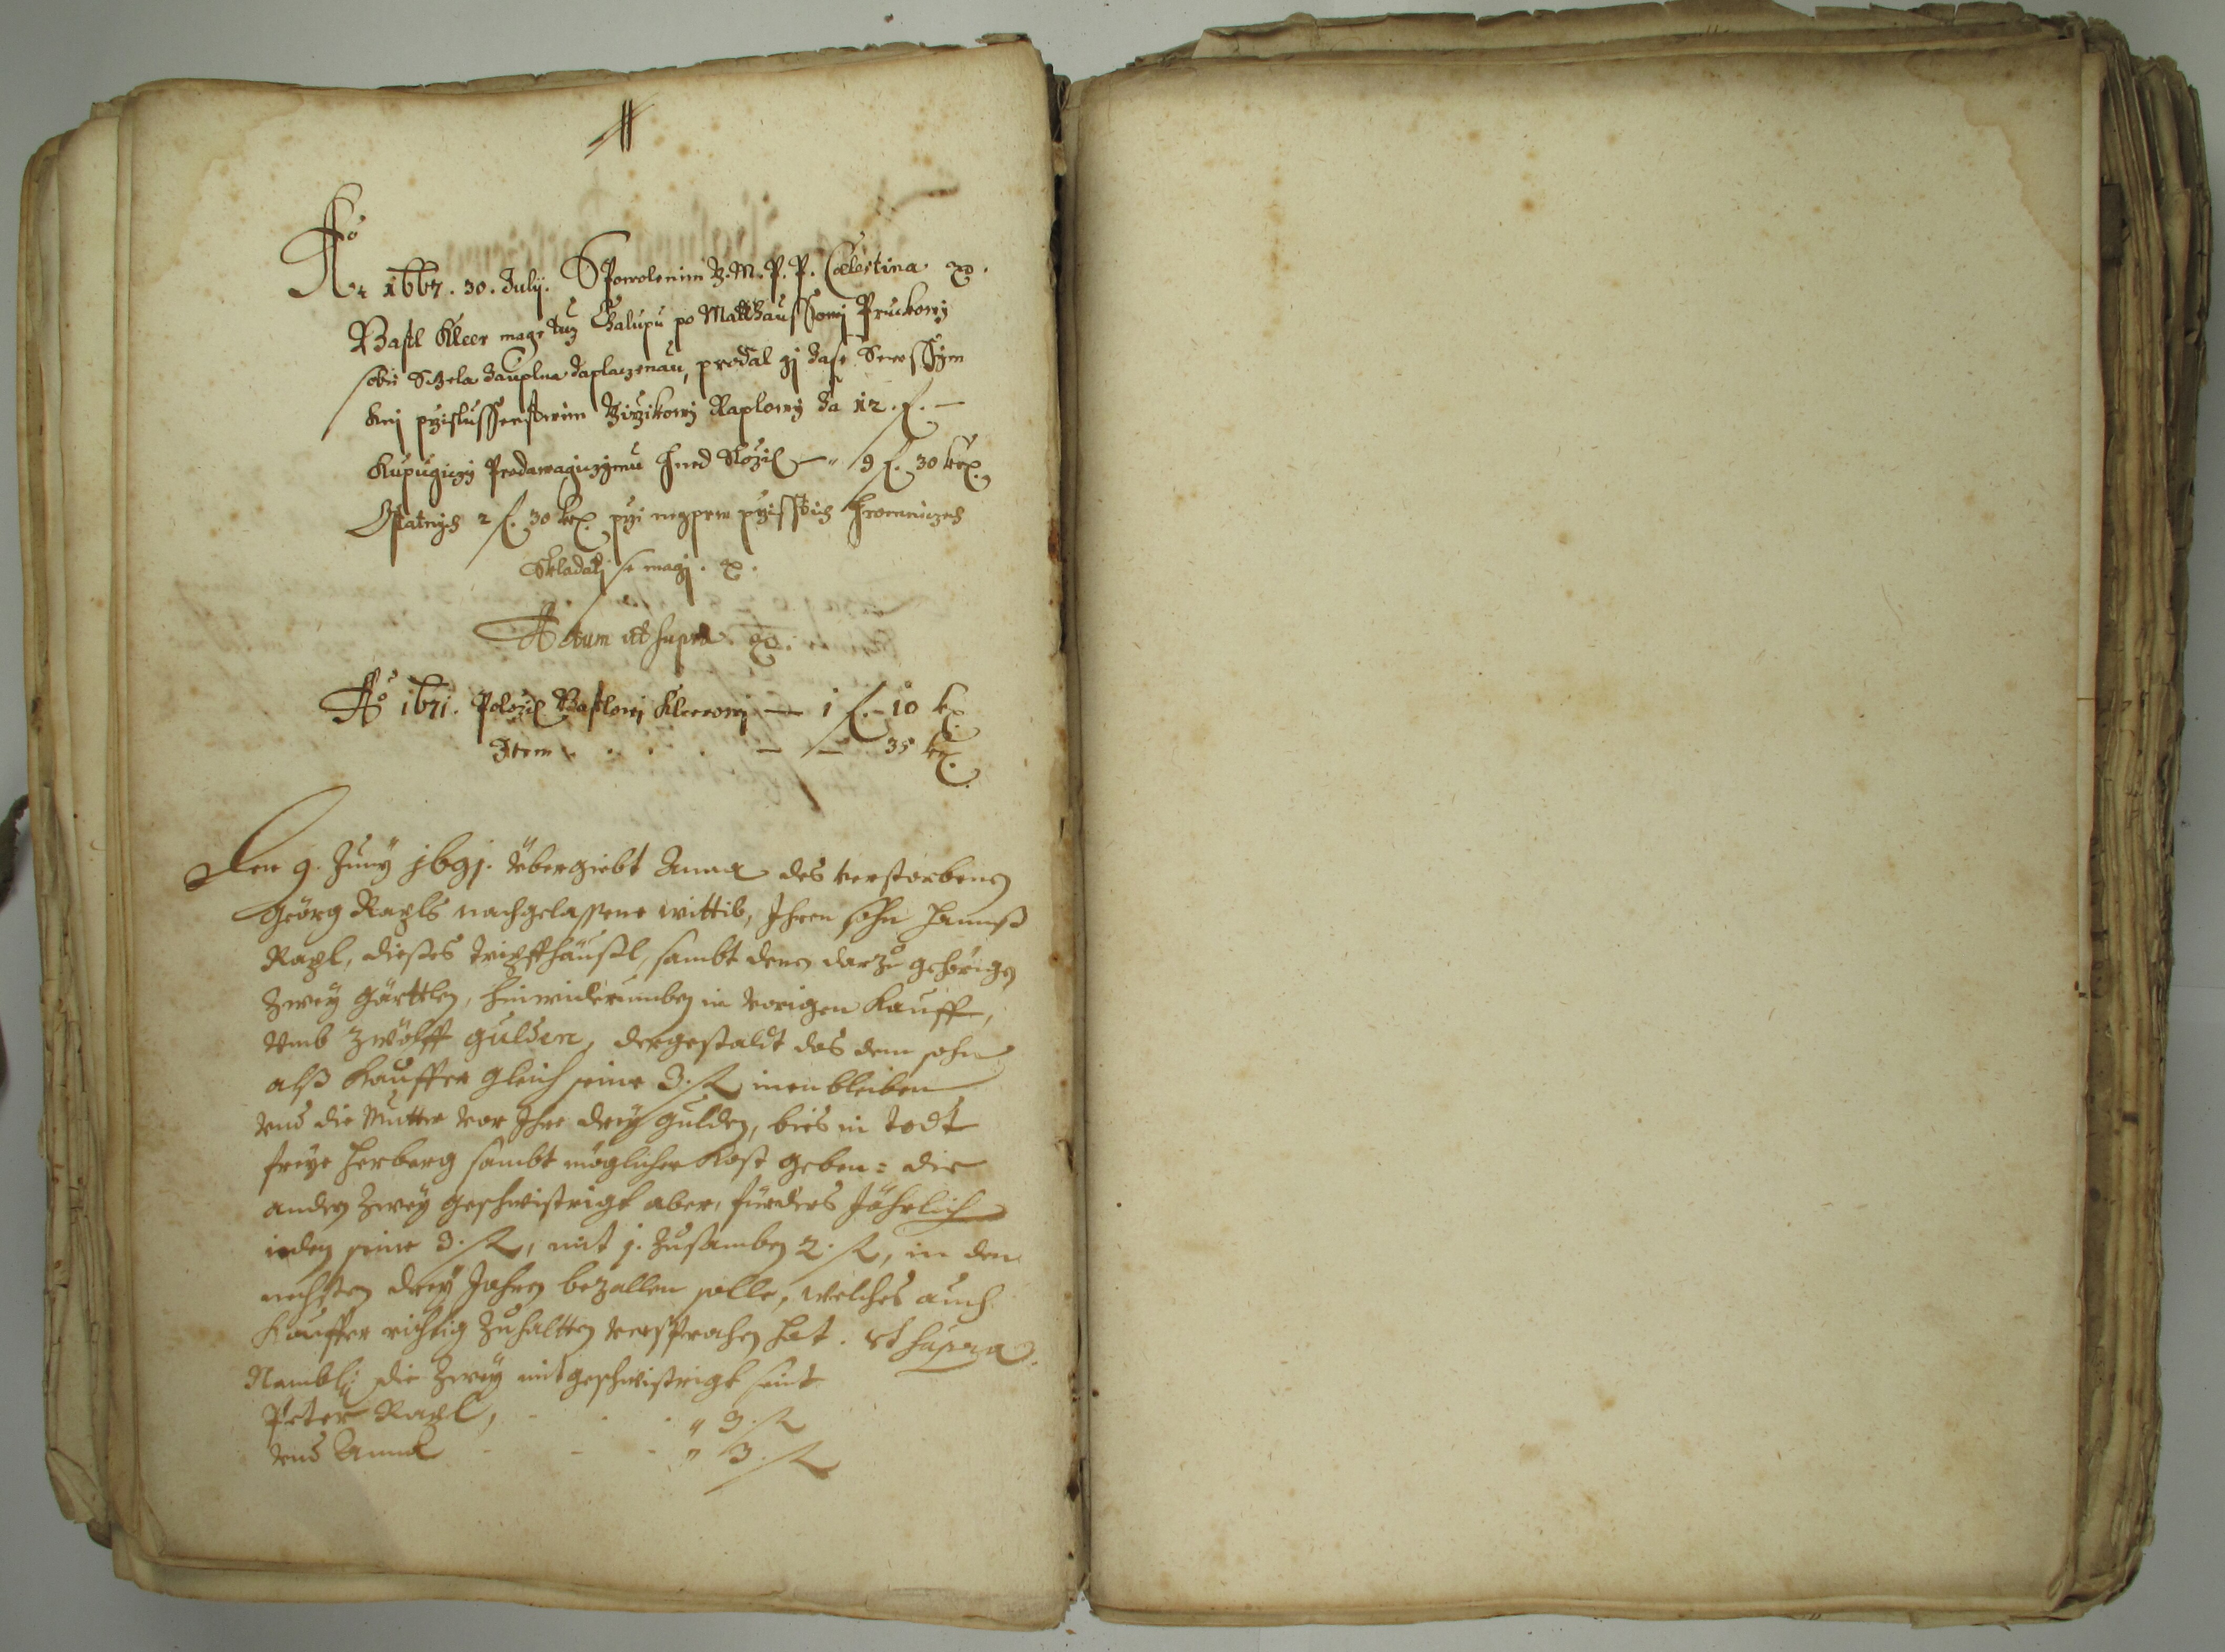 Aõ 1667. 30. July. S Powolenim B. M. P. P. Cœlestina
Bastl Kleer mage tuz Chalupu po Matthaussowj Pruckowy
sobie Szela zauplna zaplaczenau, prodal gj zase Sewssým
knj pržislussenstwim Giržikowj Raplowý za 12. f. —
Kupugiczý Prodawagiczýmu hned Složil — 9 f. 30 kr.
Ostatnych 2 f. 30 kr. pржi negprw pržisstich Hromniczých
Skladatj se magj.
Actum ut supra.
Aõ 1671. Položil Bastlowj Kleerowj — 1 f. 10 kr.
Item . . . . — — 35 kr.
Den 9. Juny 1691. übergiebt Anna des verstorbenen
Geörg Rapls nachgelassene wittib, Ihren sohn Hannß
Rapl, dießes tripffhäußl, sambt denen darzu gehörigen
Zwey gärttlen, hinwiderumben in vorigen Kauff,
vmb Zwölff gulden, dergestaldt das dem sohn
alß Kauffer gleich seine 3. fl. inenbleiben
vnd die Mutter vor Ihre drey gulden, bies in todt
freye herberg sambt möglicher Kost geben: die
andern Zwey geschwistrigt aber, fürders Jährlich
ieden seine 3. fl., mit 1. Zusamben 2. fl., in den
nechsten drey Jahren bezallen solle, welches auch
Kauffer richtig zuhaltten versprochen hat. vt supra.
Nambl: die Zwey mitgeschwistrigt seint
Peter Rapl, - . . " 3. fl.
vnd Anna - - - " 3. fl.